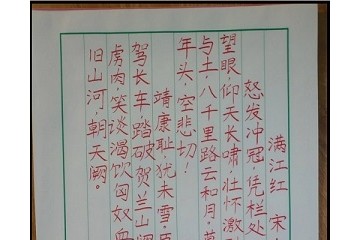 满江红 宋
怒发冲冠,凭栏处
望眼,仰天长啸,壮怀激
与土,八千里路云和月。莫
年头,空悲切!
靖康耻,犹未雪,臣
驾长车踏破贺兰山
虏肉,笑谈渴饮匈奴血
旧山河,朝天阙。